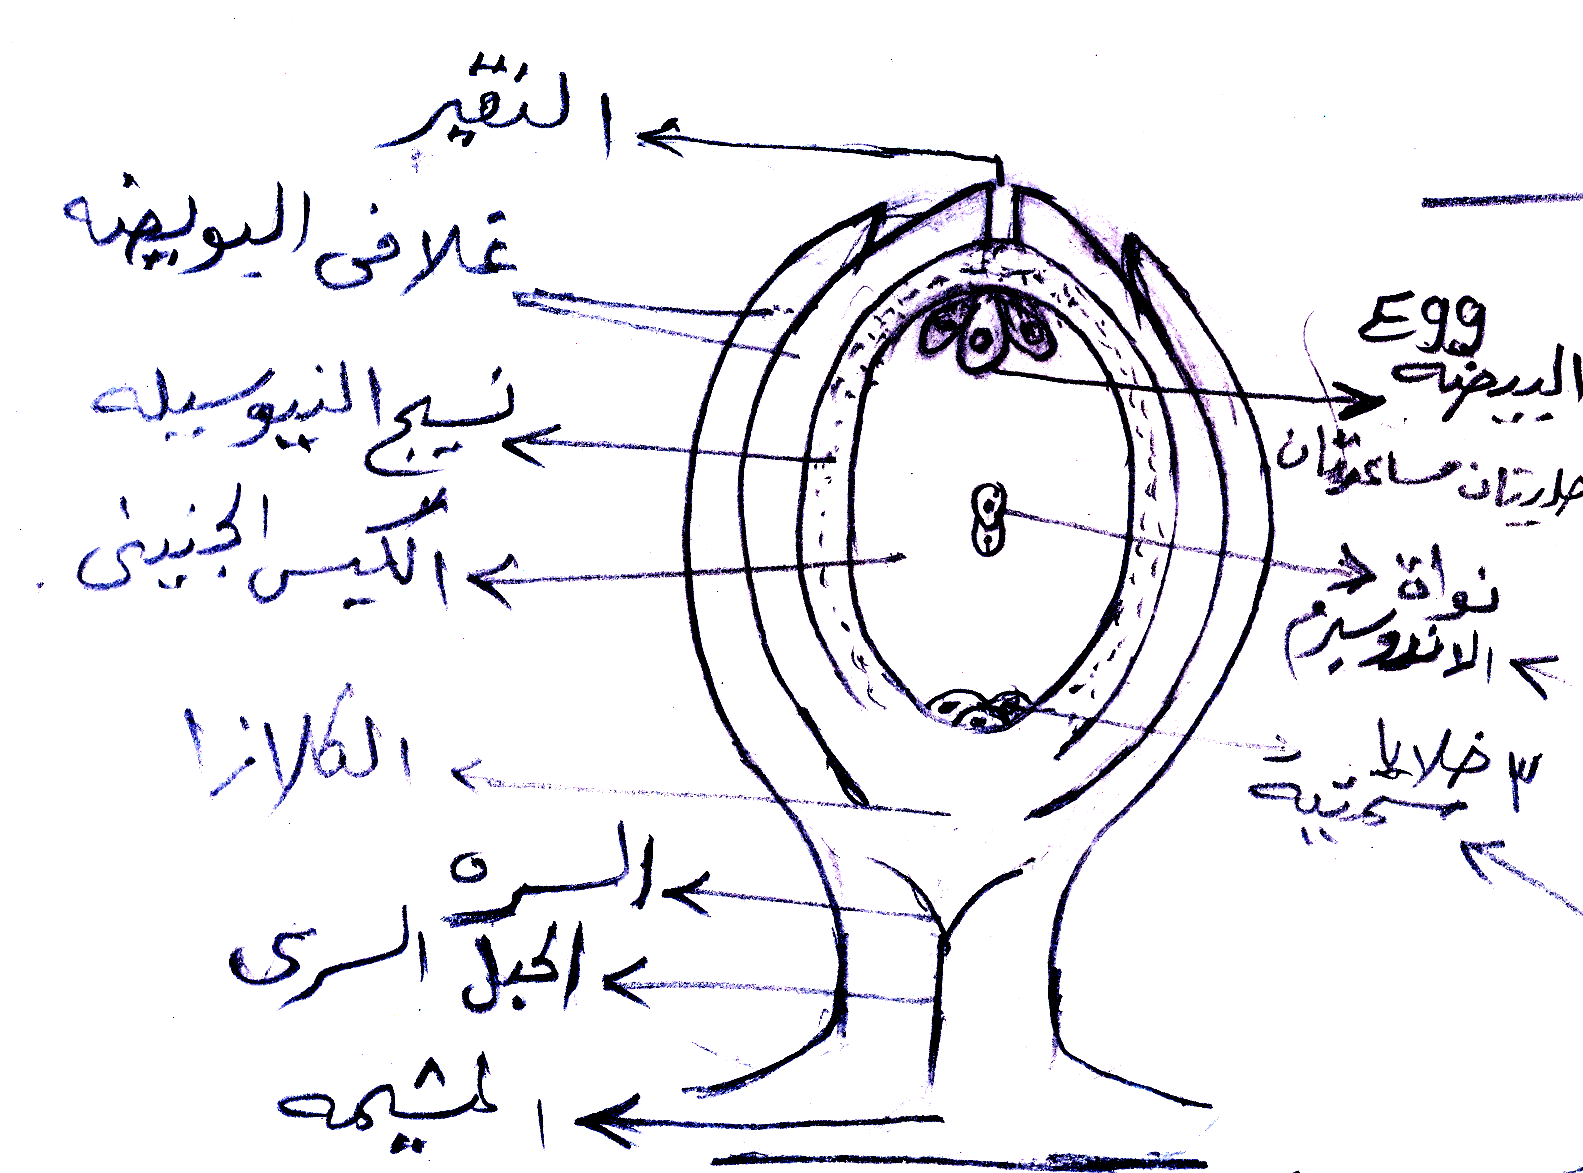 النقير
غلافى البويضه
نسيج النيوسيله
الكيس الجنينى
الكلازا
السره
الحبل السرى
المشيمه
Egg
البيضه
خليتان مساعدتان
نواة
الاندوسبرم
٣ خلايا
سمتية